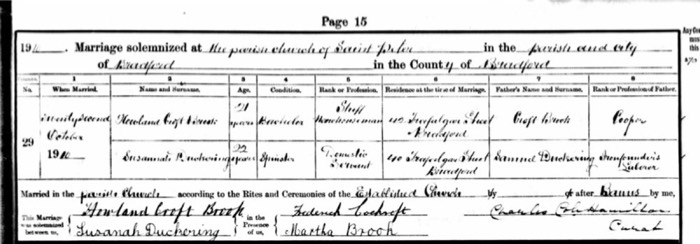 Page 15
1910. Marriage solemnized at the parish church of Saint Peter in the parish and city
of Bradford in the County of Bradford
No. 1 When Married. 2 Name and Surname. 3 Age. 4 Condition. 5 Rank or Profession. 6 Residence at the time of Marriage. 7 Father's Name and Surname. 8 Rank or Profession of Father.
29
Twenty second October 1910 Howland Croft Brook 21 years Bachelor Stuff Warehouseman 40 Trafalgar Street Bradford Croft Brook Cooper
Susannah Duckering 22 years Spinster Domestic Servant 40 Trafalgar Street Bradford Samuel Duckering Ironfounder's Labourer
Married in the parish Church according to the Rites and Ceremonies of the Established Church by or after Banns by me,
This Marriage was solemnized between us, Howland Croft Brook in the Presence of us, Frederick Cockroft Charles Hamilton
Susanah Duckering Martha Brook Curat